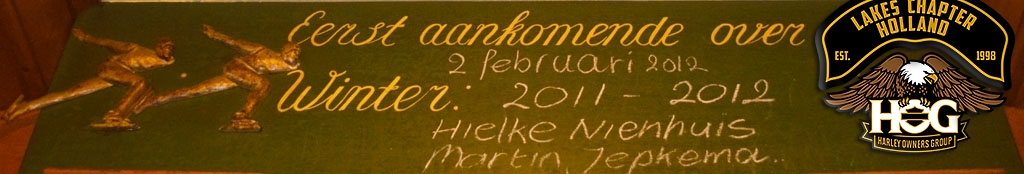 Eerst aankomende over
2 februari 2012
Winter: 2011 - 2012
Hielke Nienhuis
Martin Jepkema..
LAKES CHAPTER
HOLLAND
EST. 1998
HOG
HARLEY OWNERS GROUP